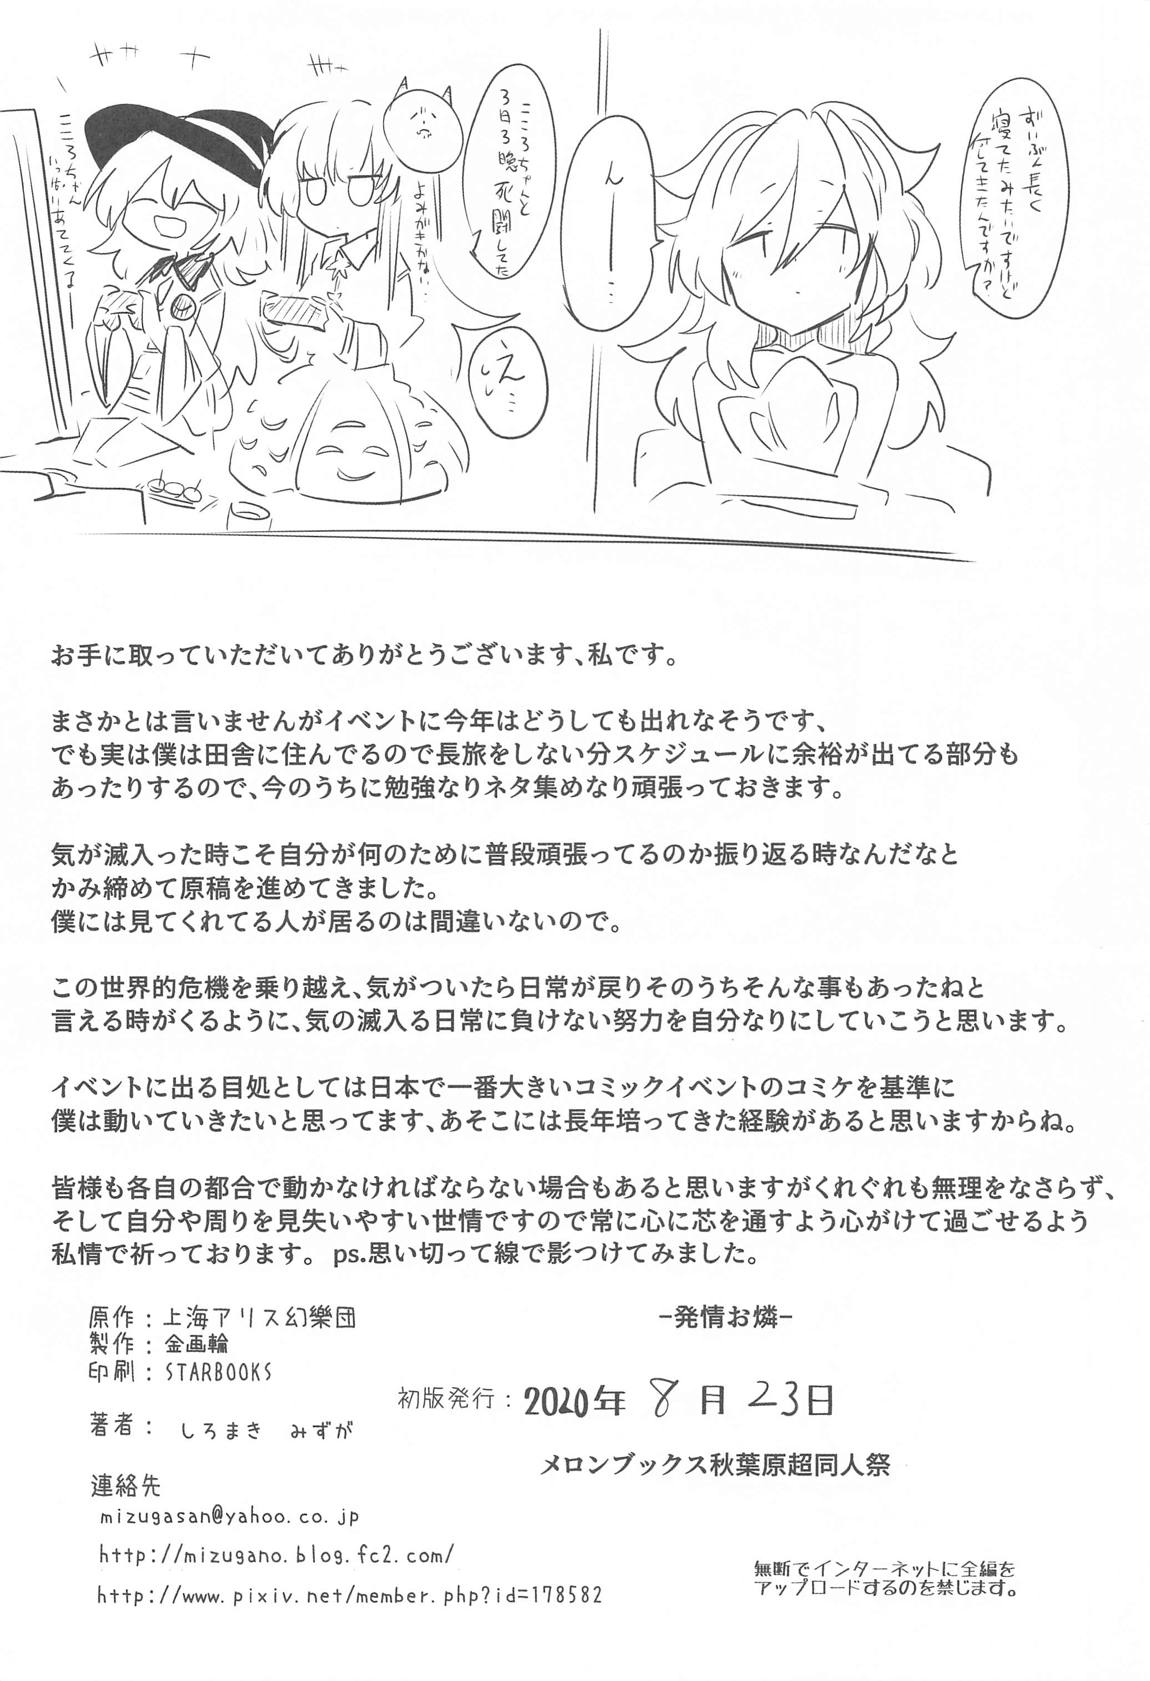 ずいぶん長く
寝てたみたいですけど
何してきたんですか?
んーー…
こころちゃんと
3日3晩死闘してた
え…
よみがきかない…
こころちゃん
いっぱいあててくる
お手に取っていただいてありがとうございます、私です。
まさかとは言いませんがイベントに今年はどうしても出れなそうです、
でも実は僕は田舎に住んでるので長旅をしない分スケジュールに余裕が出てる部分も
あったりするので、今のうちに勉強なりネタ集めなり頑張っておきます。
気が滅入った時こそ自分が何のために普段頑張ってるのか振り返る時なんだなと
かみ締めて原稿を進めてきました。
僕には見てくれてる人が居るのは間違いないので。
この世界的危機を乗り越え、気がついたら日常が戻りそのうちそんな事もあったねと
言える時がくるように、気の滅入る日常に負けない努力を自分なりにしていこうと思います。
イベントに出る目処としては日本で一番大きいコミックイベントのコミケを基準に
僕は動いていきたいと思ってます、あそこには長年培ってきた経験があると思いますからね。
皆様も各自の都合で動かなければならない場合もあると思いますがくれぐれも無理をなさらず、
そして自分や周りを見失いやすい世情ですので常に心に芯を通すよう心がけて過ごせるよう
私情で祈っております。 ps.思い切って線で影つけてみました。
原作：上海アリス幻樂団
製作：金画輪
印刷：STARBOOKS
著者： しろまき みずが
連絡先
mizugasan@yahoo.co.jp
http://mizugano.blog.fc2.com/
http://www.pixiv.net/member.php?id=178582
−発情お燐−
初版発行：2020年 8月 23日
メロンブックス秋葉原超同人祭
無断でインターネットに全編を
アップロードするのを禁じます。